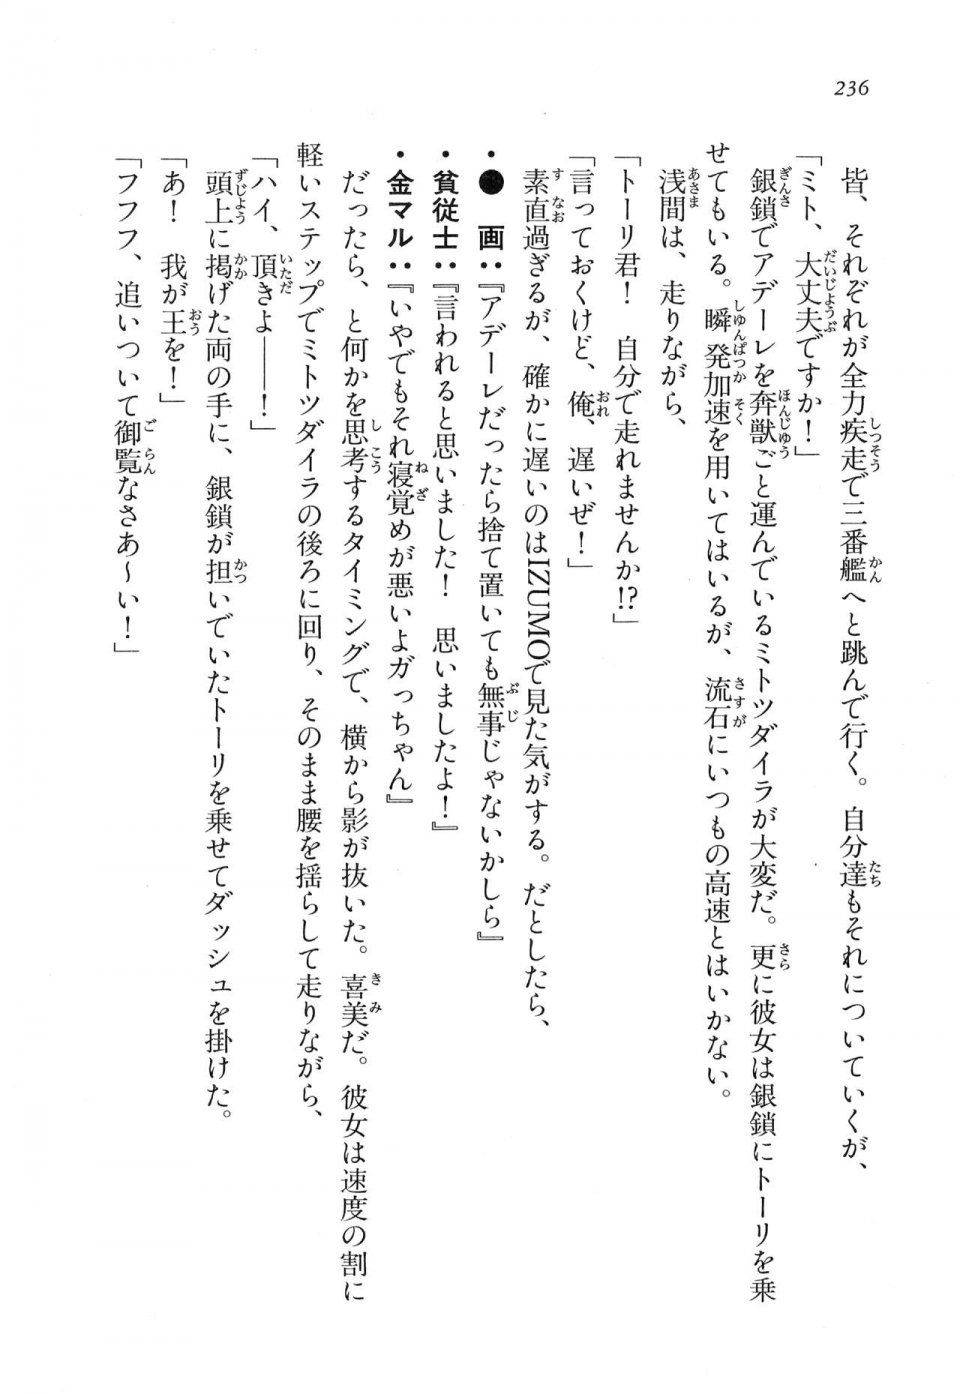 236
皆、それぞれが全力疾走で三番艦へと跳んで行く。自分達もそれについていくが、
「ミト、大丈夫ですか！」
銀鎖でアデーレを奔獣ごと運んでいるミトツダイラが大変だ。更に彼女は銀鎖にトーリを乗
せてもいる。瞬発加速を用いてはいるが、流石にいつもの高速とはいかない。
浅間は、走りながら、
「トーリ君！　自分で走れませんか!?」
「言っておくけど、俺、遅いぜ！」
素直過ぎるが、確かに遅いのはIZUMOで見た気がする。だとしたら、
・●　画：『アデーレだったら捨て置いても無事じゃないかしら』
・貧従士：『言われると思いました！　思いましたよ！』
・金マル：『いやでもそれ寝覚めが悪いよガっちゃん』
だったら、と何かを思考するタイミングで、横から影が抜いた。喜美だ。彼女は速度の割に
軽いステップでミトツダイラの後ろに回り、そのまま腰を揺らして走りながら、
「ハイ、頂きよ――！」
頭上に掲げた両の手に、銀鎖が担いでいたトーリを乗せてダッシュを掛けた。
「あ！　我が王を！」
「フフフ、追いついて御覧なさあ～い！」